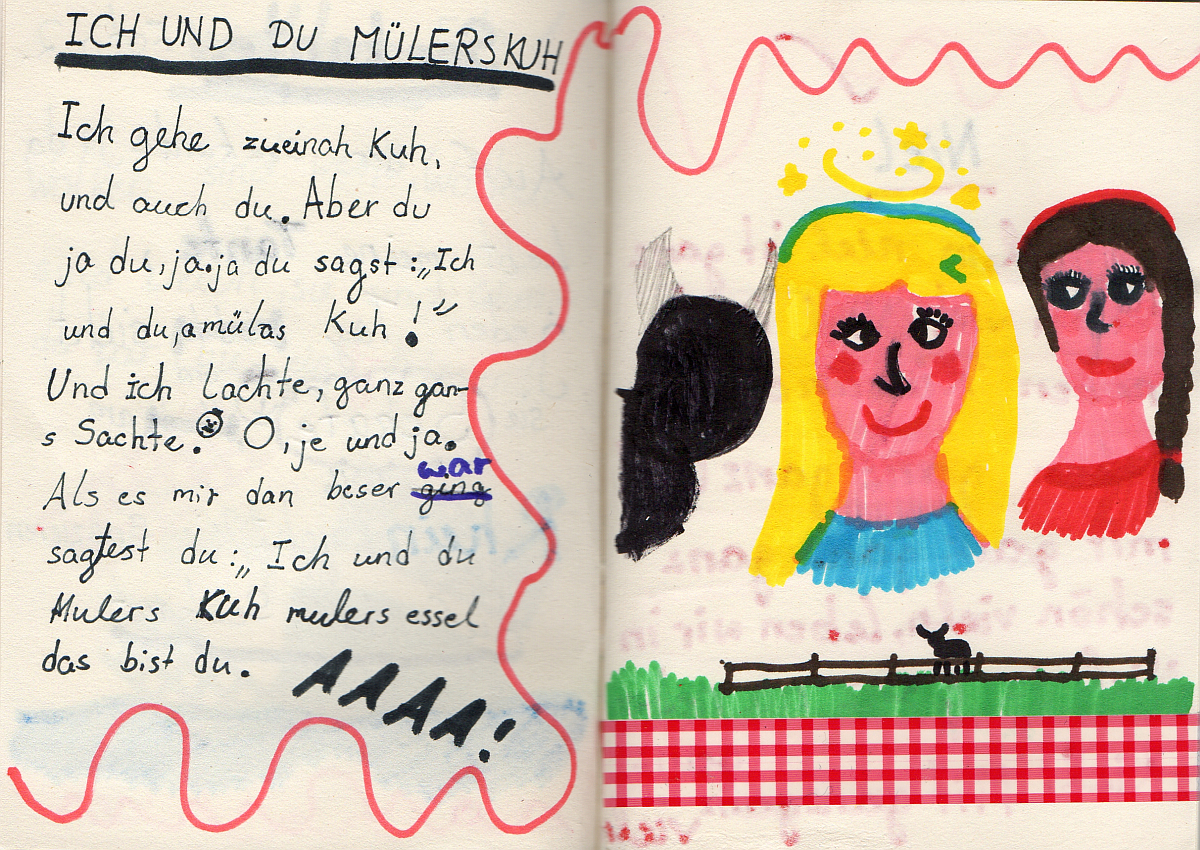 ICH UND DU MÜLERSKUH
Ich gehe zueinah Kuh,
und auch du. Aber du
ja du, ja.ja du sagst: „Ich
und du, amülas Kuh!”
Und ich lachte, ganz gan-
s Sachte. O, je und ja.
war
Als es mir dan beser ging
sagtest du: „Ich und du
Mulers Kuh mulers essel
das bist du.
AAAA!